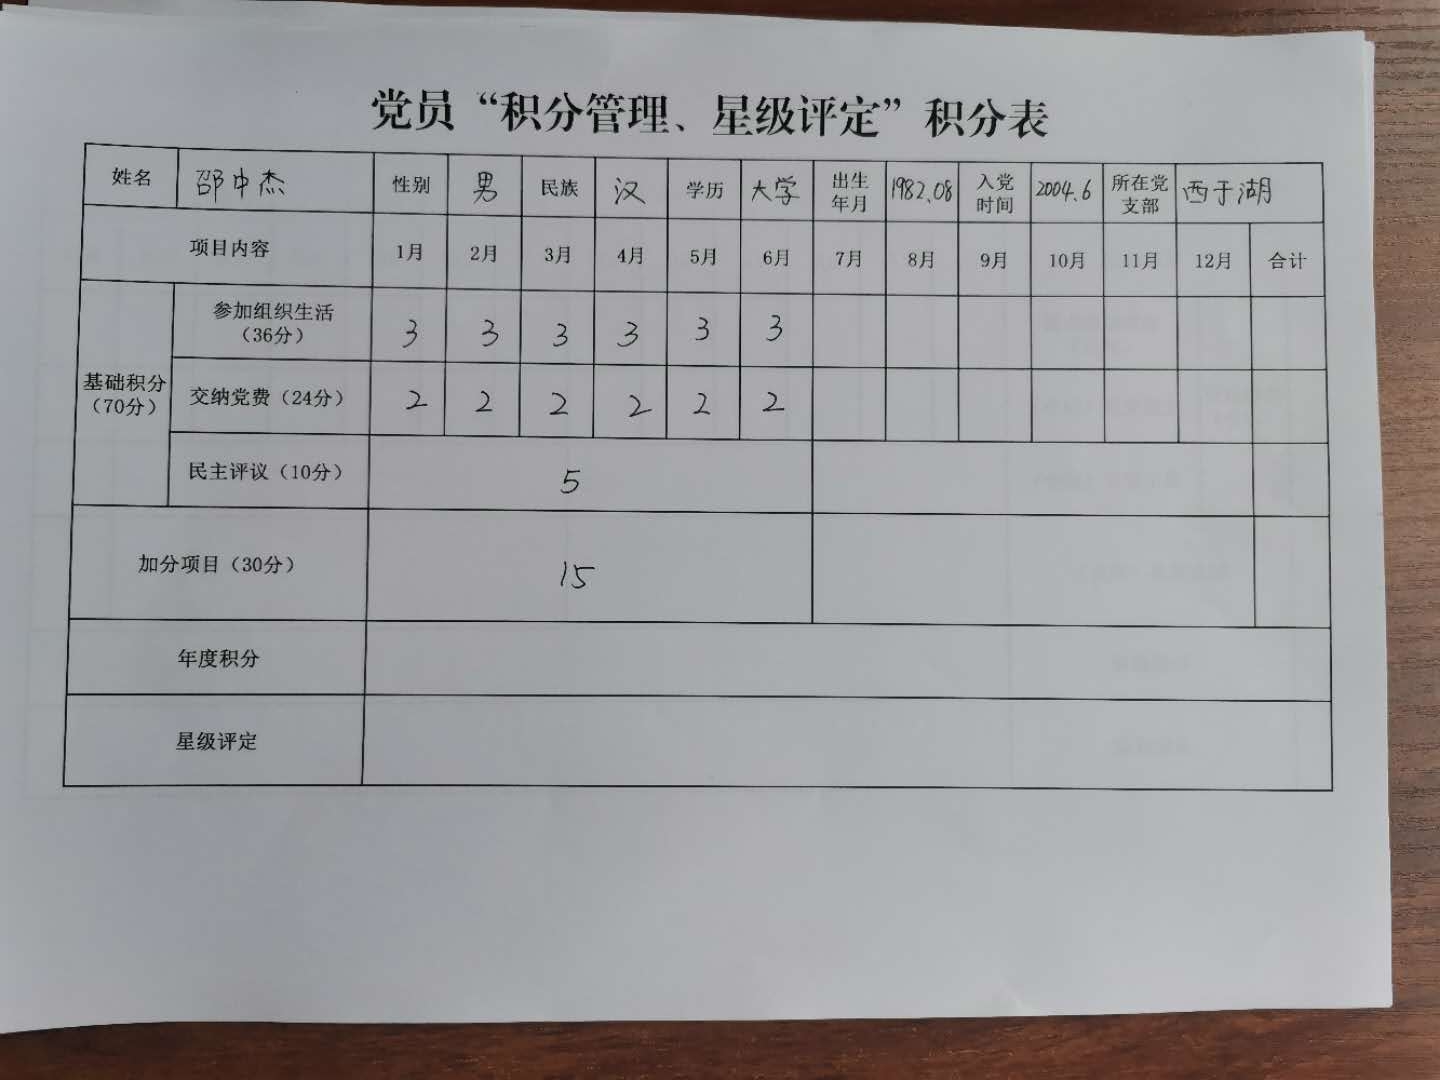 党员“积分管理、星级评定”积分表
姓名 邵中杰 性别 男 民族 汉 学历 大学 出生年月 1982.08 入党时间 2004.6 所在党支部 西于湖
项目内容 1月 2月 3月 4月 5月 6月 7月 8月 9月 10月 11月 12月 合计
基础积分（70分）
参加组织生活（36分） 3 3 3 3 3 3
交纳党费（24分） 2 2 2 2 2 2
民主评议（10分） 5
加分项目（30分） 15
年度积分
星级评定